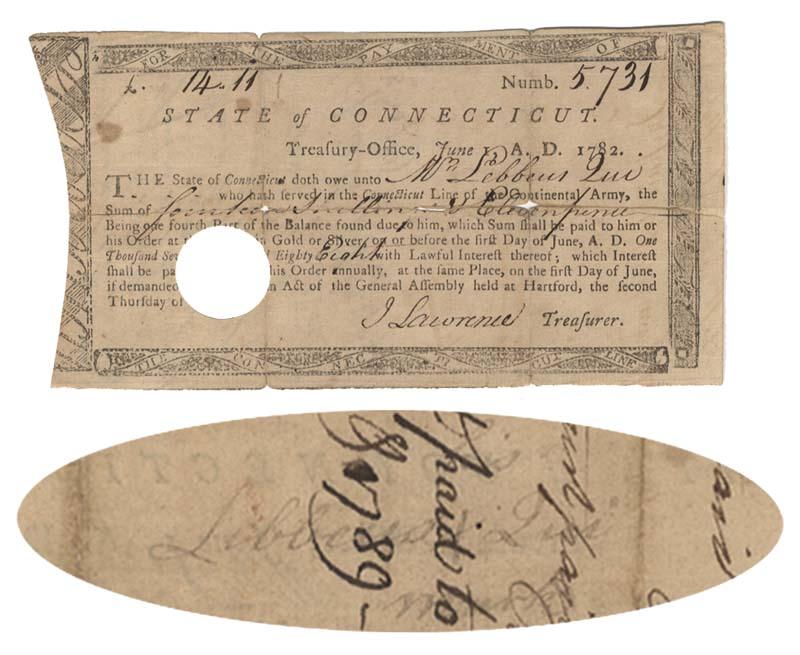 FOR THE PAYMENT OF
£. 14.11 Numb. 5.731
STATE of CONNECTICUT.
Treasury-Office, June 1, A. D. 1782.
THE State of Connecticut doth owe unto Mr. Lebbeus Qui
who hath served in the Connecticut Line of the Continental Army, the
Sum of fourteen Shillings & Eleven pence
Being one fourth Part of the Balance found due to him, which Sum shall be paid to him or
his Order at in Gold or Silver, on or before the first Day of June, A. D. One
Thousand Sev Eighty Eight with Lawful Interest thereof; which Interest
shall be pa his Order annually, at the same Place, on the first Day of June,
if demanded n Act of the General Assembly held at Hartford, the second
Thursday of
J Lawrence Treasurer.
THE CONNECTICUT LINE
Lebbeus Qui
paid to
1789